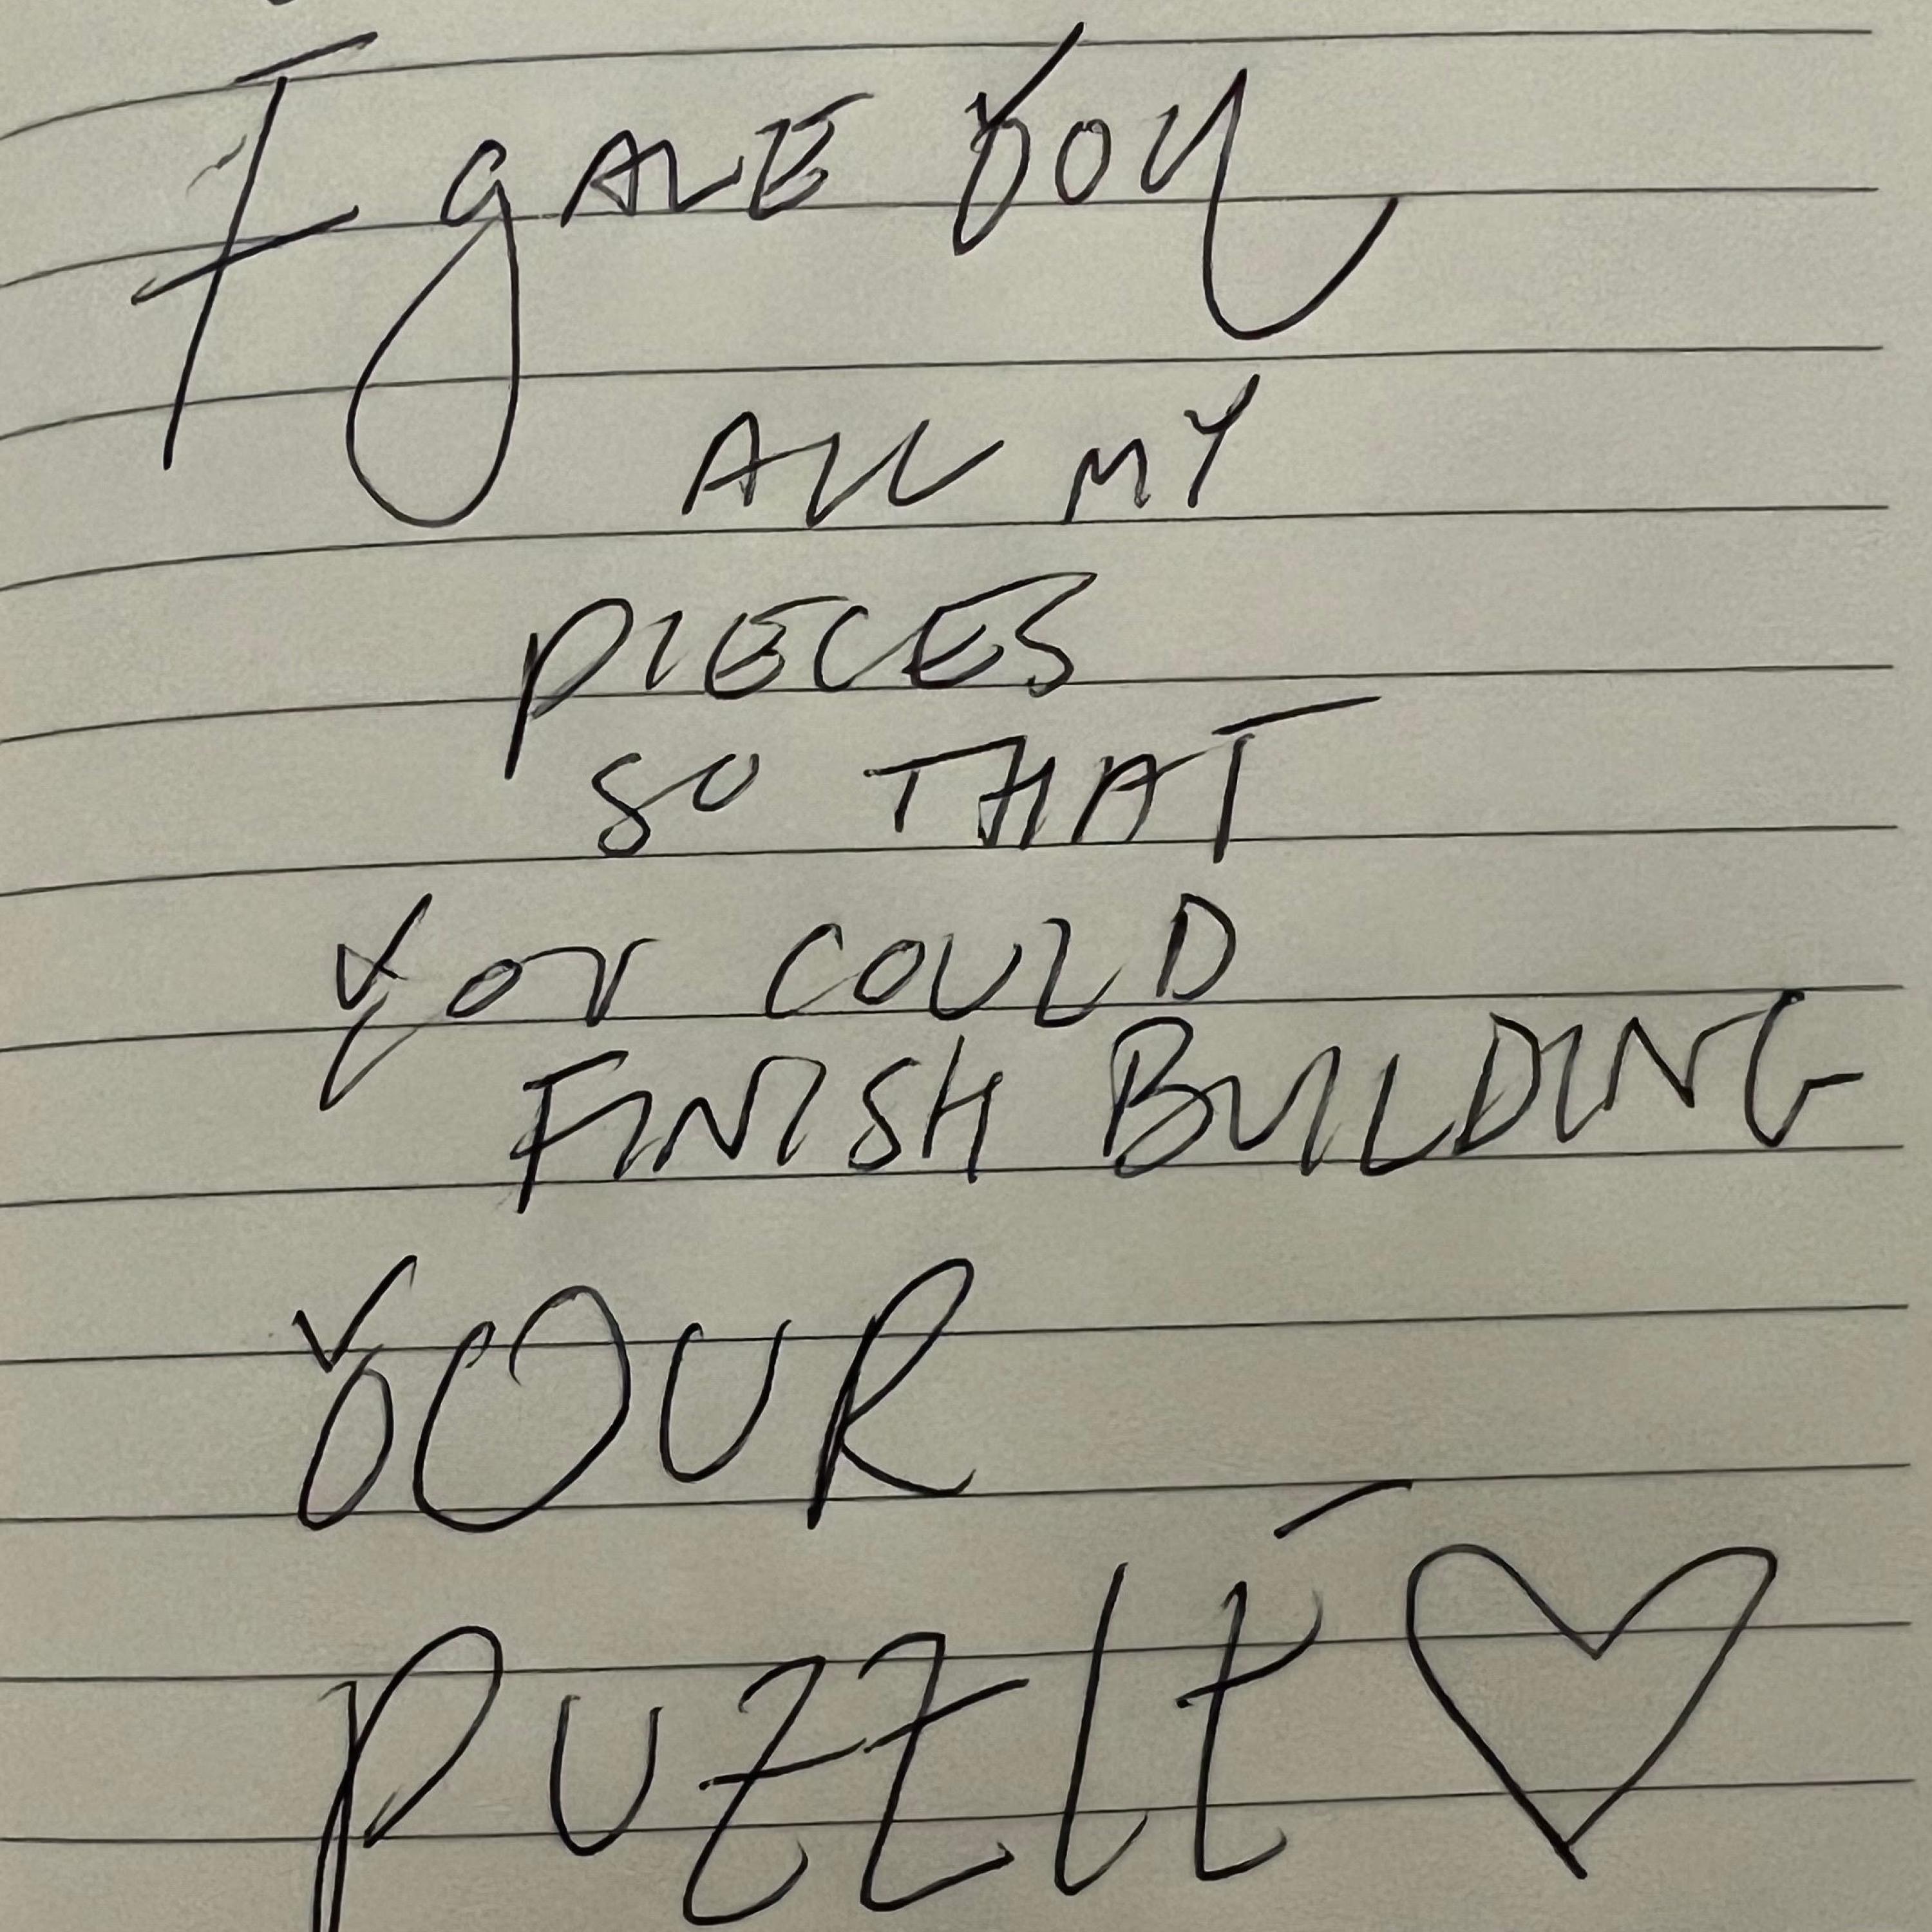 I gAVE YOU
ALL MY
PIECES
SO THAT
YOU COULD
FINISH BUILDING
YOUR
PUZZLE ♡